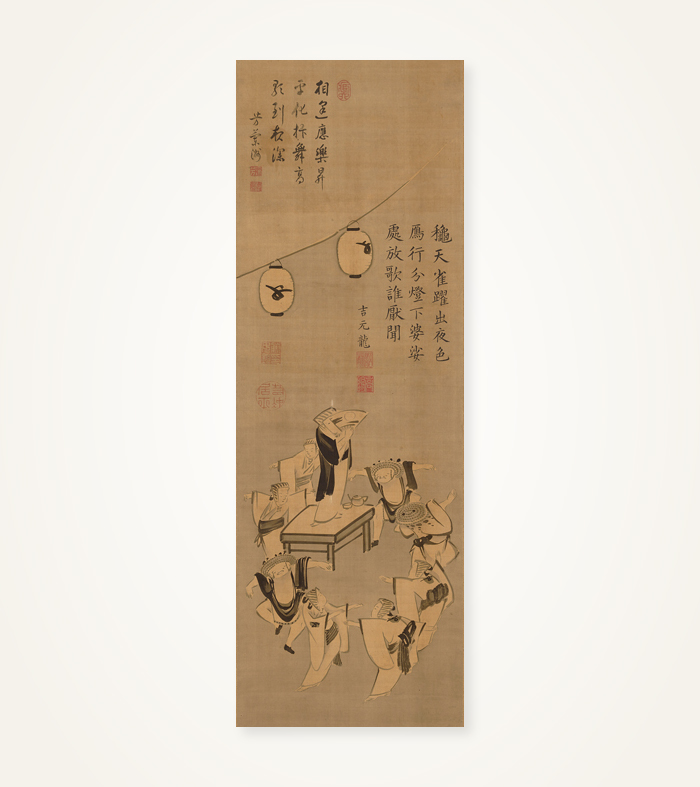 相追應樂昇
平化抃舞高
歌到夜深
穐天雀躍出夜色
鴈行分燈下婆娑
處放歌誰厭聞
吉元龍